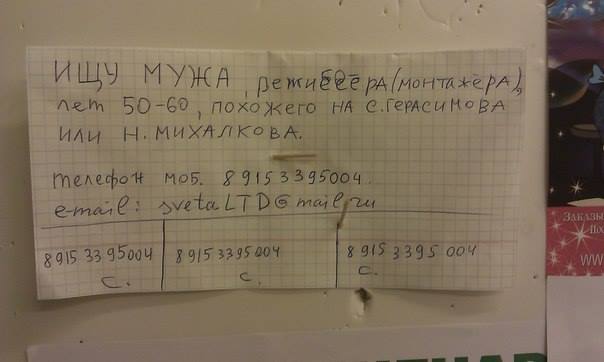 ИЩУ МУЖА, режиссёра (монтажёра),
лет 50-60, похожего на С. ГЕРАСИМОВА
или Н. МИХАЛКОВА.
телефон моб. 89153395004.
e-mail: svetaLTD@mail.ru
8915 3395004
С.
8915 3395004
С.
8915 3395 004
С.
ЗАКАЗЫ
WW